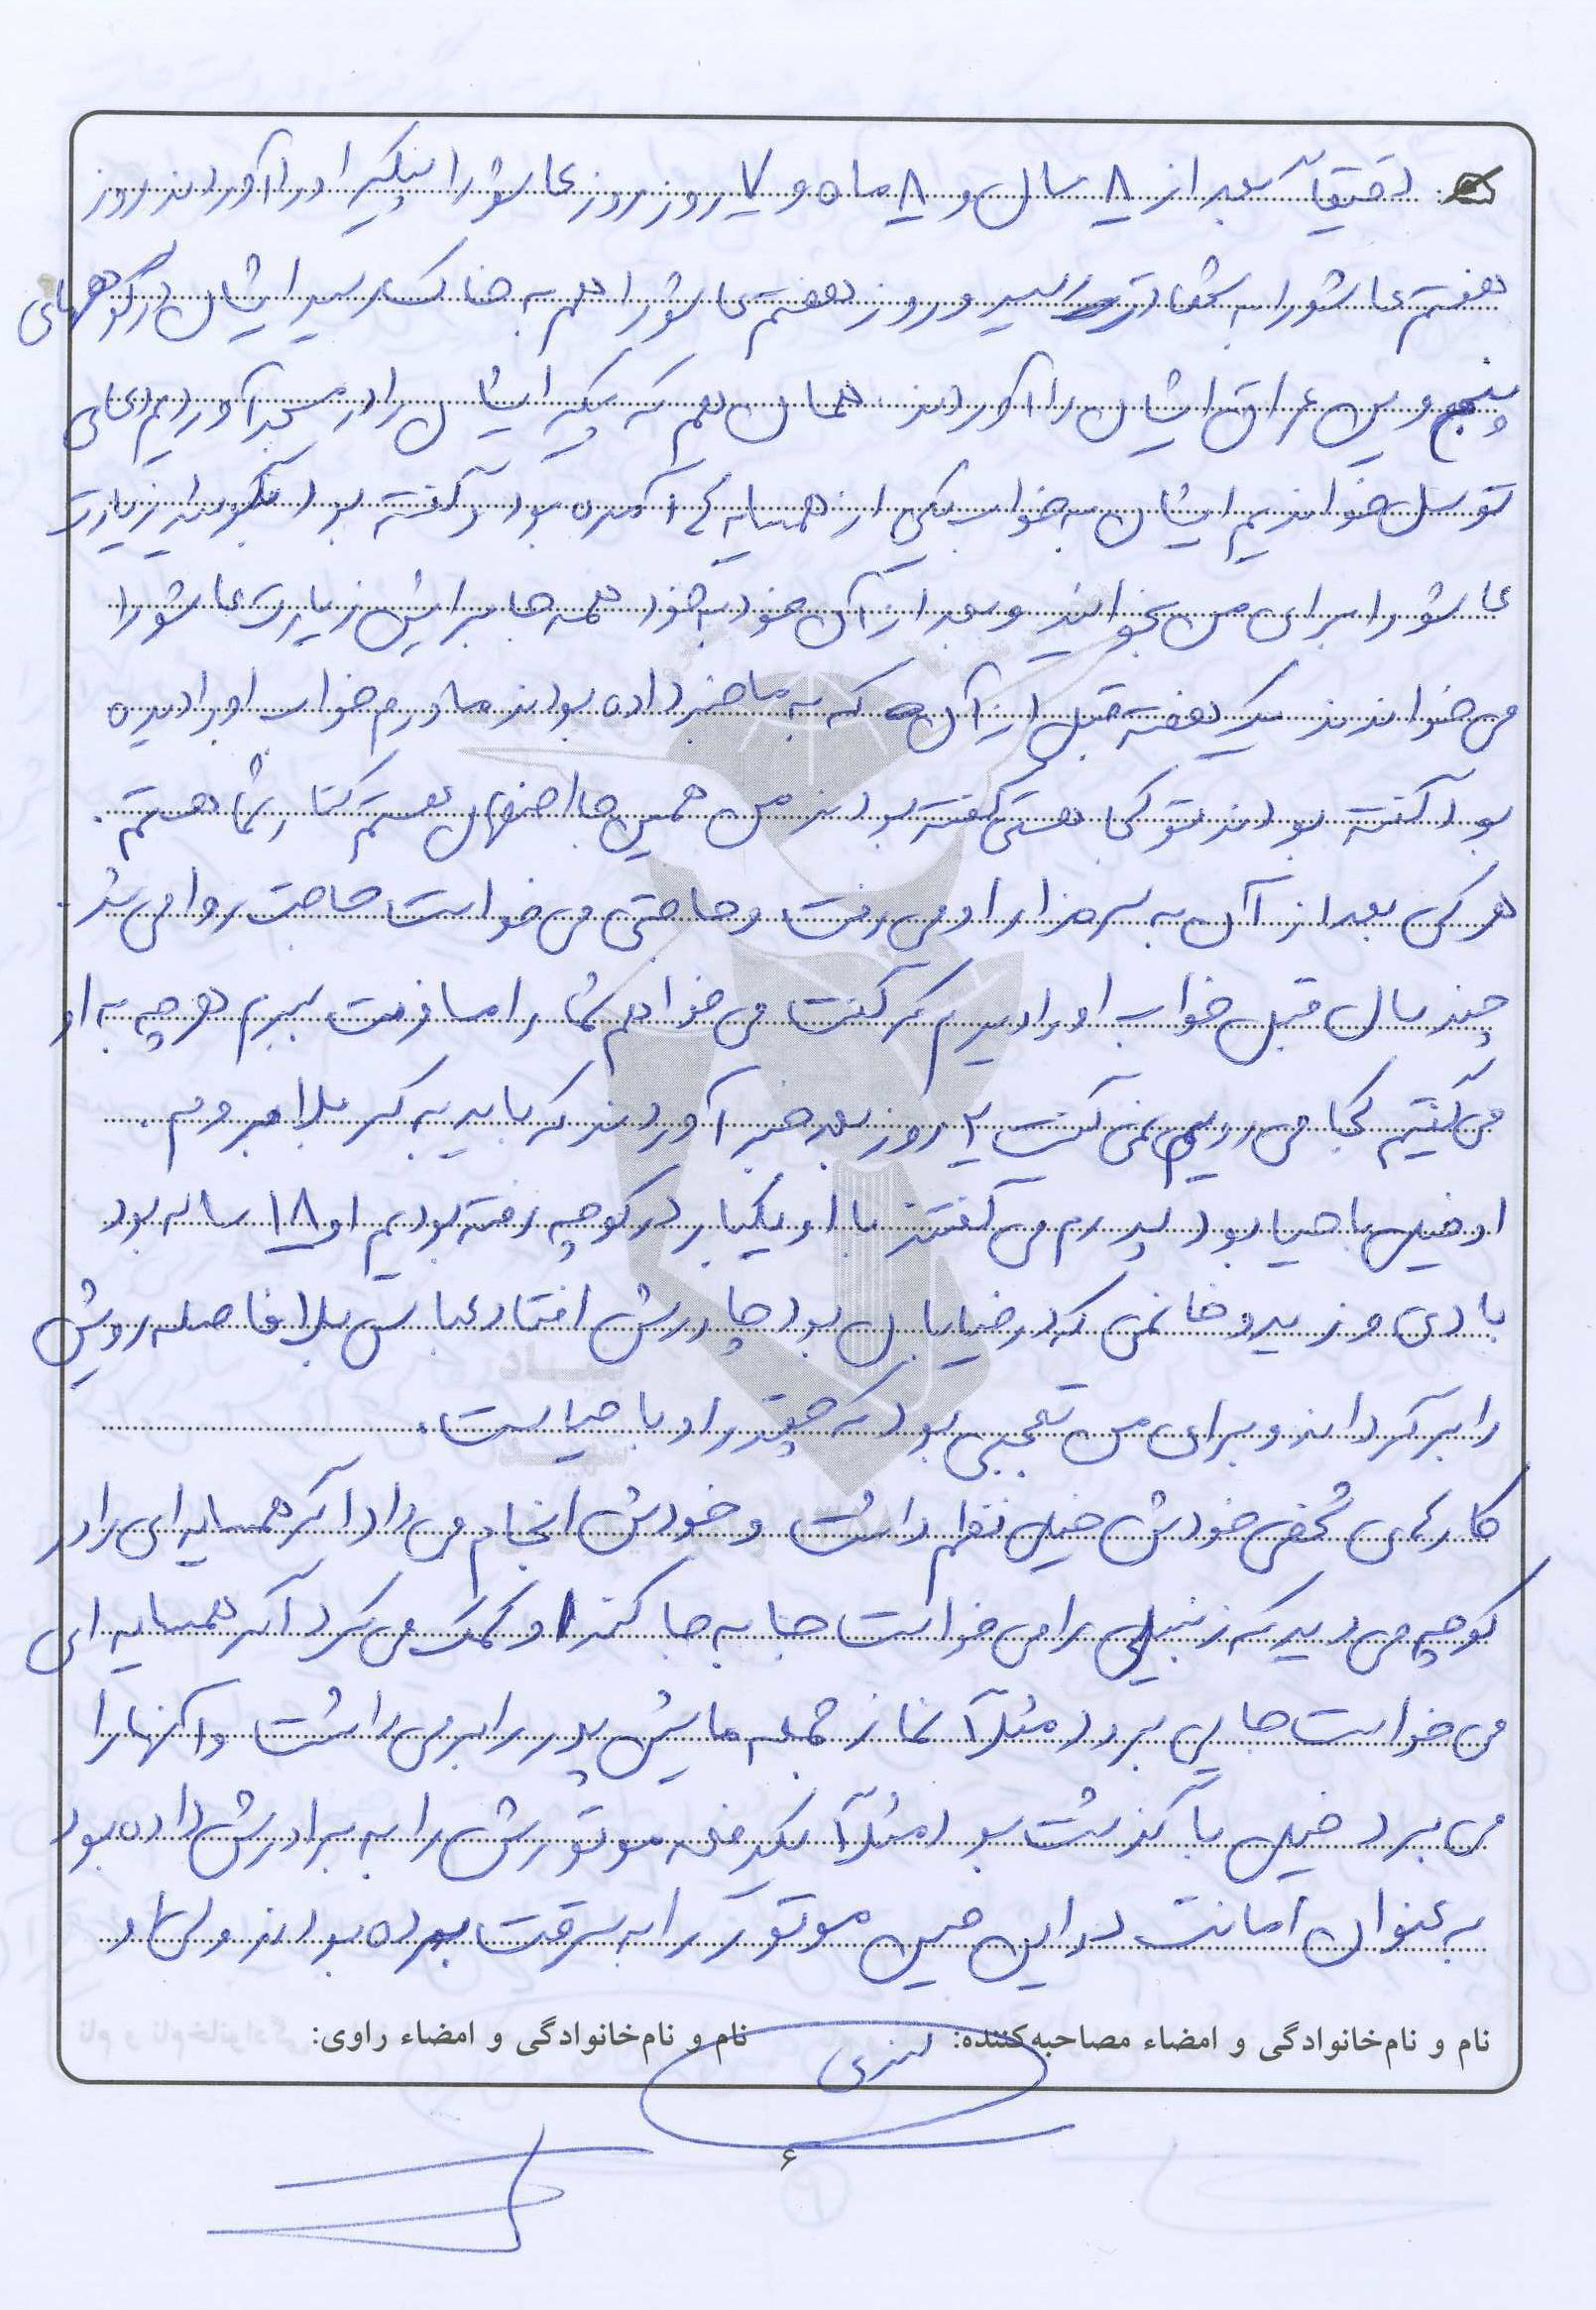 دقیقاً بعد از ۸ سال و ۸ ماه و ۷ روز روز عاشورا پیکر او را آوردند روز
هفتم عاشورا به شهادت رسید و روز هفتم عاشورا هم به خاک رسید ایشان در کوههای
پنج وین عراق ایشان را آوردند. همان دهم که پیکر ایشان را در مسجد آوردیم دعای
توسل خواندیم ایشان به خواب یکی از همسایه ها آمده بود و گفته بود بگویید زیارت
عاشورا برای من بخوانند و بعد از آن خود به خود همه جا برایش زیارت عاشورا
می خواندند یک هفته قبل از آن که به ما خبر داده بودند مادرم خواب او را دیده
بود گفته بودند تو کجا هستی گفته بودند من همین جا اصفهان هستم کنار شما هستم.
هر کس بعد از آن به سر مزار او می رفت و حاجتی می خواست حاجت روا می شد.
چند سال قبل خواب او را دیدم که گفت می خواهم شما را مسافرت ببرم هر چه به او
می گفتیم کجا می رویم نمی گفت ۲ روز بعد خبر آوردند که باید به کربلا بروم.
او خیلی با حیا بود پدرم می گفتند با او یکبار در کوچه رفته بودیم او ۱۸ ساله بود
بادی وزید و خانمی که در خیابان بود چادرش افتاد عباس بلافاصله رویش
را برگرداند و برای من تعجبی بود که چقدر او با حیا است.
کارهای شخصی خودش خیلی نظم داشت و خودش انجام می داد اگر همسایه ای را در
کوچه می دید که زنبیلی را می خواست جا به جا کند او کمک می کرد اگر همسایه ای
می خواست جایی برود مثلاً نماز جمعه ماشین پدر را برمی داشت و آنها را
می برد خیلی با گذشت بود مثلاً یکدفعه موتورش را به برادرش داده بود
به عنوان امانت در این حین موتور را به سرقت برده بودند ولی او
نام و نام‌خانوادگی و امضاء مصاحبه‌کننده: نام و نام‌خانوادگی و امضاء راوی:
۶